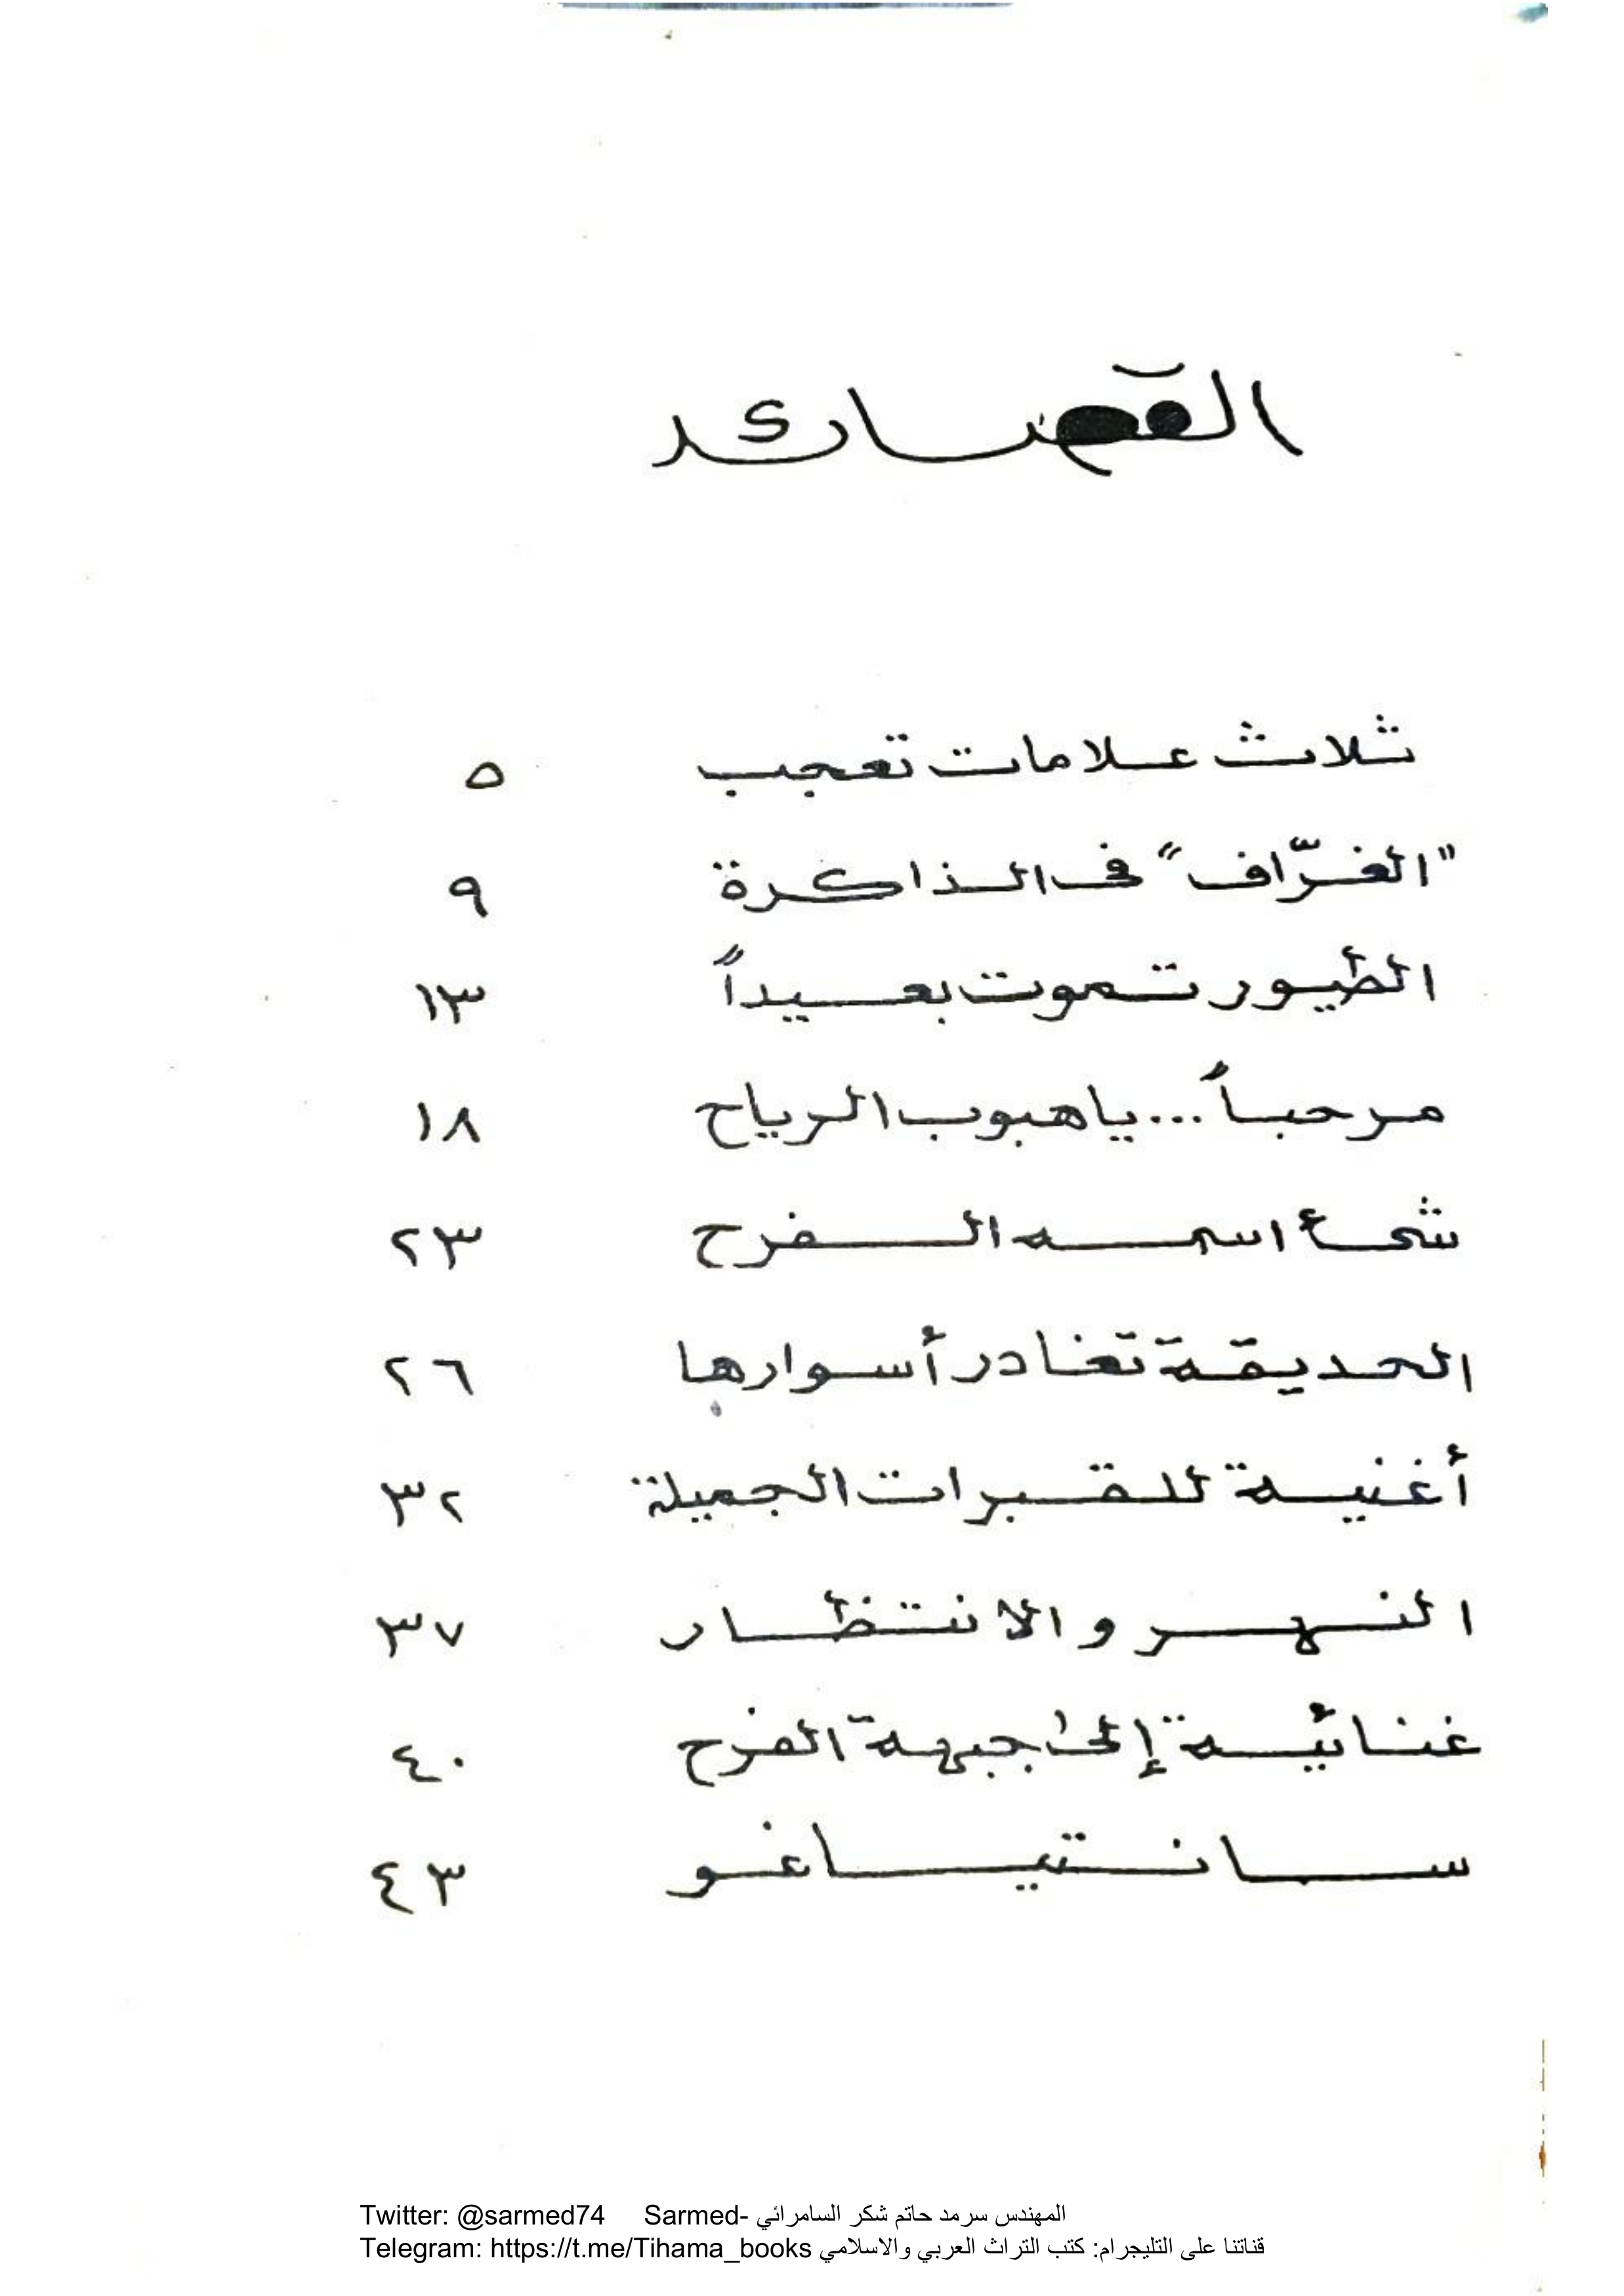 القصائد
ثلاث علامات تعجب ٥
"الغرّاف" في الذاكرة ٩
الطيور تموت بعيداً ١٣
مرحباً... يا هبوب الرياح ١٨
شيء اسمه الفرح ٢٣
الحديقة تغادر أسوارها ٢٦
أغنية للقبرات الجميلة ٣٢
النهر والانتظار ٣٧
غنائية إلى جبهة الفرح ٤٠
سانتياغو ٤٣
Twitter: @sarmed74 Sarmed- المهندس سرمد حاتم شكر السامرائي
Telegram: https://t.me/Tihama_books قناتنا على التليجرام: كتب التراث العربي والاسلامي